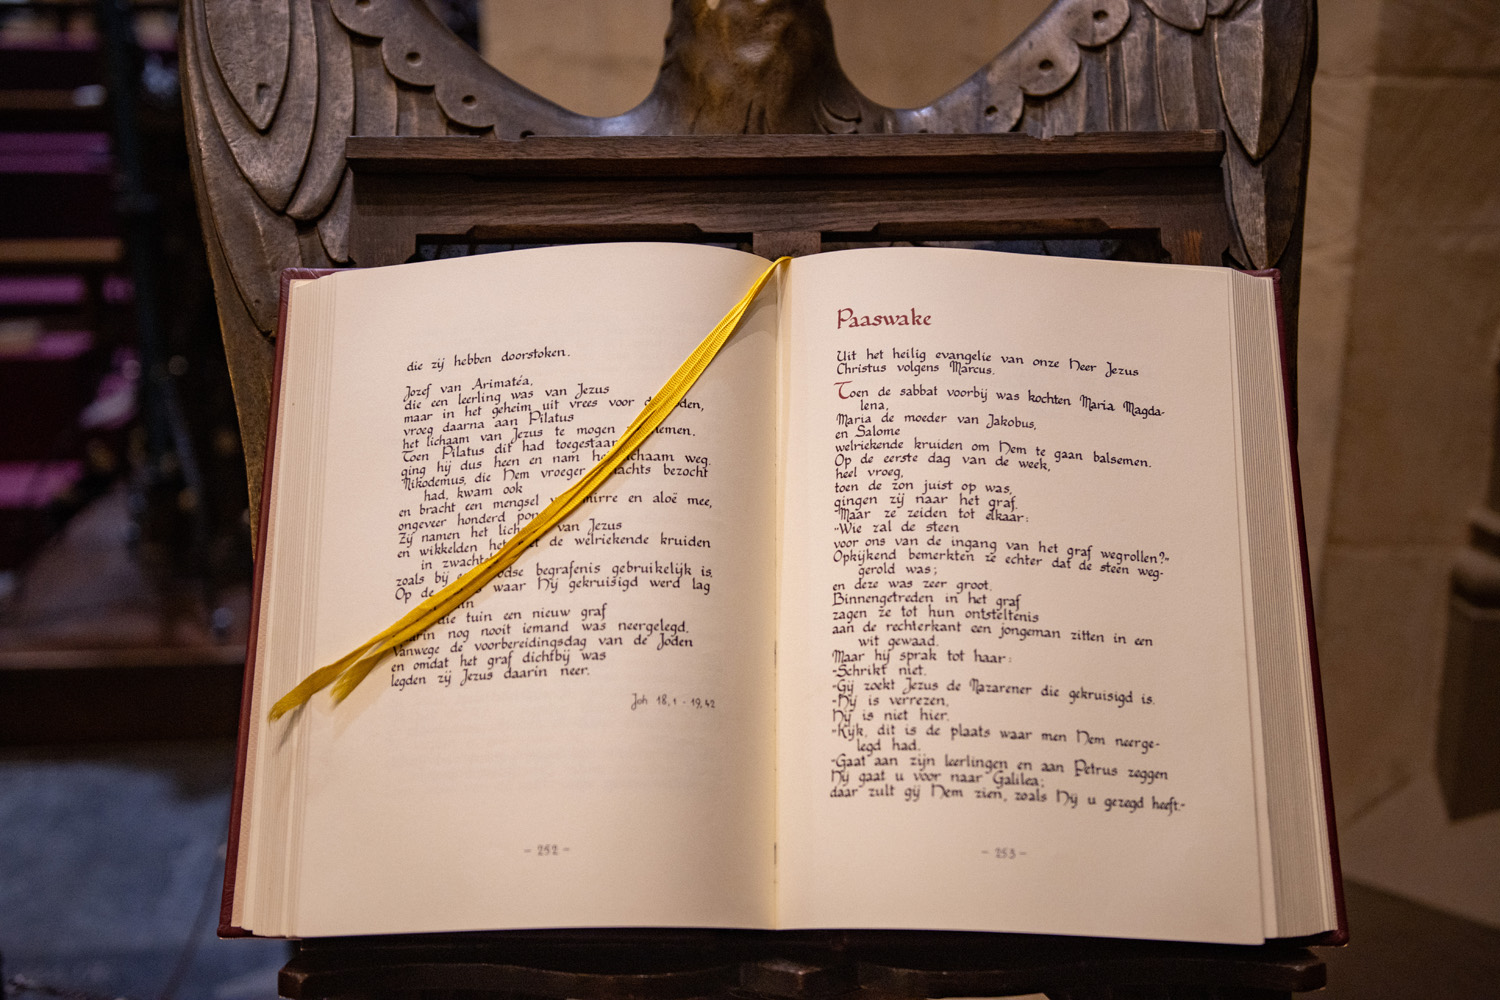 die zij hebben doorstoken.
Jozef van Arimatéa,
die een leerling was van Jezus
maar in het geheim uit vrees voor de
vroeg daarna aan Pilatus
het lichaam van Jezus te mogen
Toen Pilatus dit had toegestaan
ging hij dus heen en nam het lichaam weg.
Nikodemus, die Hem vroeger nachts bezocht
had, kwam ook
en bracht een mengsel mirre en aloë mee,
ongeveer honderd
Zij namen het van Jezus
en wikkelden het de welriekende kruiden
in
zoals bij begrafenis gebruikelijk is.
Op de waar Hij gekruisigd werd lag
die tuin een nieuw graf
nog nooit iemand was neergelegd.
Vanwege de voorbereidingsdag van de Joden
en omdat het graf dichtbij was
legden zij Jezus daarin neer.
Joh 18,1 - 19,42
- 252 -
Paaswake
Uit het heilig evangelie van onze Heer Jezus
Christus volgens Marcus.
Toen de sabbat voorbij was kochten Maria Magda-
lena,
Maria de moeder van Jakobus,
en Salome
welriekende kruiden om Hem te gaan balsemen.
Op de eerste dag van de week,
heel vroeg,
toen de zon juist op was,
gingen zij naar het graf.
"Maar ze zeiden tot elkaar:
"Wie zal de steen
voor ons van de ingang van het graf wegrollen?"
Opkijkend bemerkten ze echter dat de steen weg-
gerold was;
en deze was zeer groot.
Binnengetreden in het graf
zagen ze tot hun ontsteltenis
aan de rechterkant een jongeman zitten in een
wit gewaad.
Maar hij sprak tot haar:
"Schrikt niet.
"Gij zoekt Jezus de Nazarener die gekruisigd is.
"Hij is verrezen,
Hij is niet hier.
"Kijk, dit is de plaats waar men Hem neerge-
legd had.
"Gaat aan zijn leerlingen en aan Petrus zeggen
Hij gaat u voor naar Galilea;
daar zult gij Hem zien, zoals Hij u gezegd heeft."
- 253 -